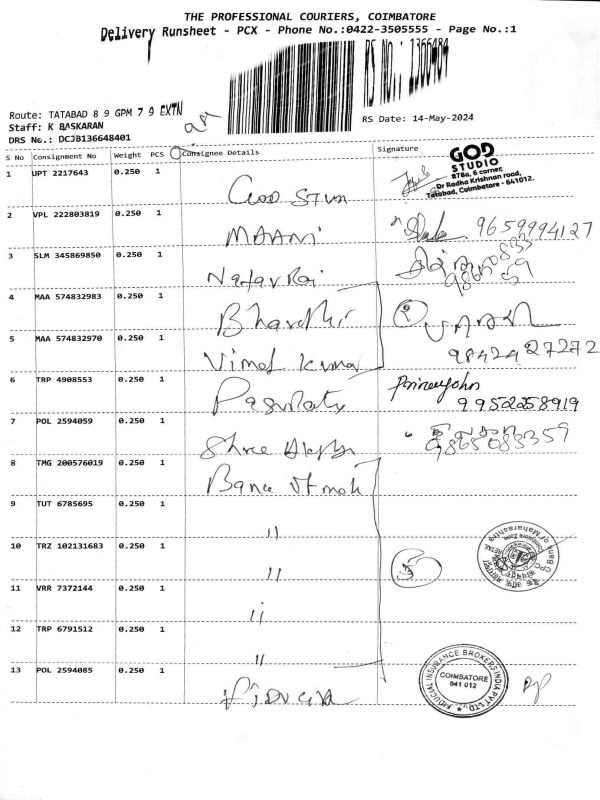 THE PROFESSIONAL COURIERS, COIMBATORE
Delivery Runsheet - PCX - Phone No.:0422-3505555 - Page No.:1
RS No.: 1366484
Route: TATABAD 8 9 GPM 7 9 EXTN
Staff: K BASKARAN
RS Date: 14-May-2024
DRS No.: DCJB136648401
S No Consignment No Weight PCS Consignee Details Signature
GOD
STUDIO
#78a, 6 corner,
Dr Radha Krishnan road,
Tatabad, Coimbatore - 641012.
1 UPT 2217643 0.250 1
2 VPL 222803819 0.250 1 MAANI 9659994127
3 SLM 345869850 0.250 1 Natarraj
4 MAA 574832983 0.250 1 Bharathi
5 MAA 574832970 0.250 1 Vimal Kumar 9842427272
6 TRP 4908553 0.250 1 9952258919
7 POL 2594059 0.250 1 Shree 9865083359
8 TMG 200576019 0.250 1
9 TUT 6785695 0.250 1 "
10 TRZ 102131683 0.250 1 "
CPC Bank of Maharashtra
Coimbatore Zone
11 VRR 7372144 0.250 1 "
12 TRP 6791512 0.250 1 "
13 POL 2594085 0.250 1
FIDUCIAL INSURANCE BROKERS INDIA PVT LTD.,
COIMBATORE
641 012